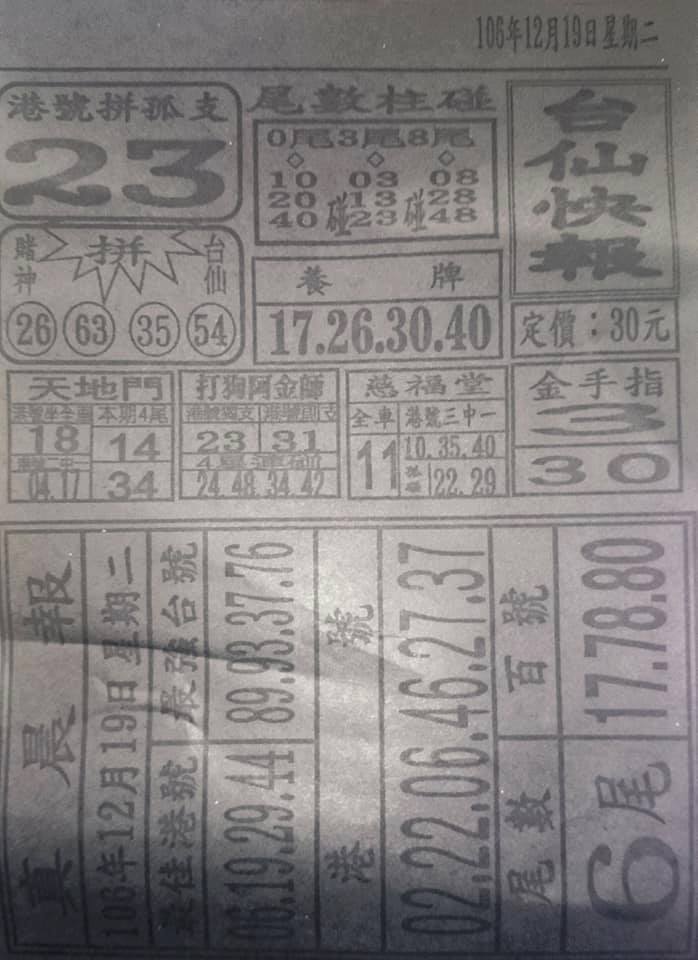 106年12月19日星期二
港號拼孤支
23
尾數柱碰
0尾 3尾 8尾
10 03 08
20 碰 13 碰 28
40 23 48
台仙快報
賭神 拼 台仙
26 63 35 54
養牌
17.26.30.40
定價：30元
天地門
港號坐全車 本期4尾
18 14
04.17 34
打狗阿金師
港號獨支 港號即支
23 31
24.48.34.42
慈福堂
全車 港號三中一
11 10.35.40
22.29
金手指
3
30
真晨報
106年12月19日星期二
最佳港號 最強台號
06.19.29.44 89.93.37.76
港號
02.22.06.46.27.37
尾數 百號
6尾 17.78.80